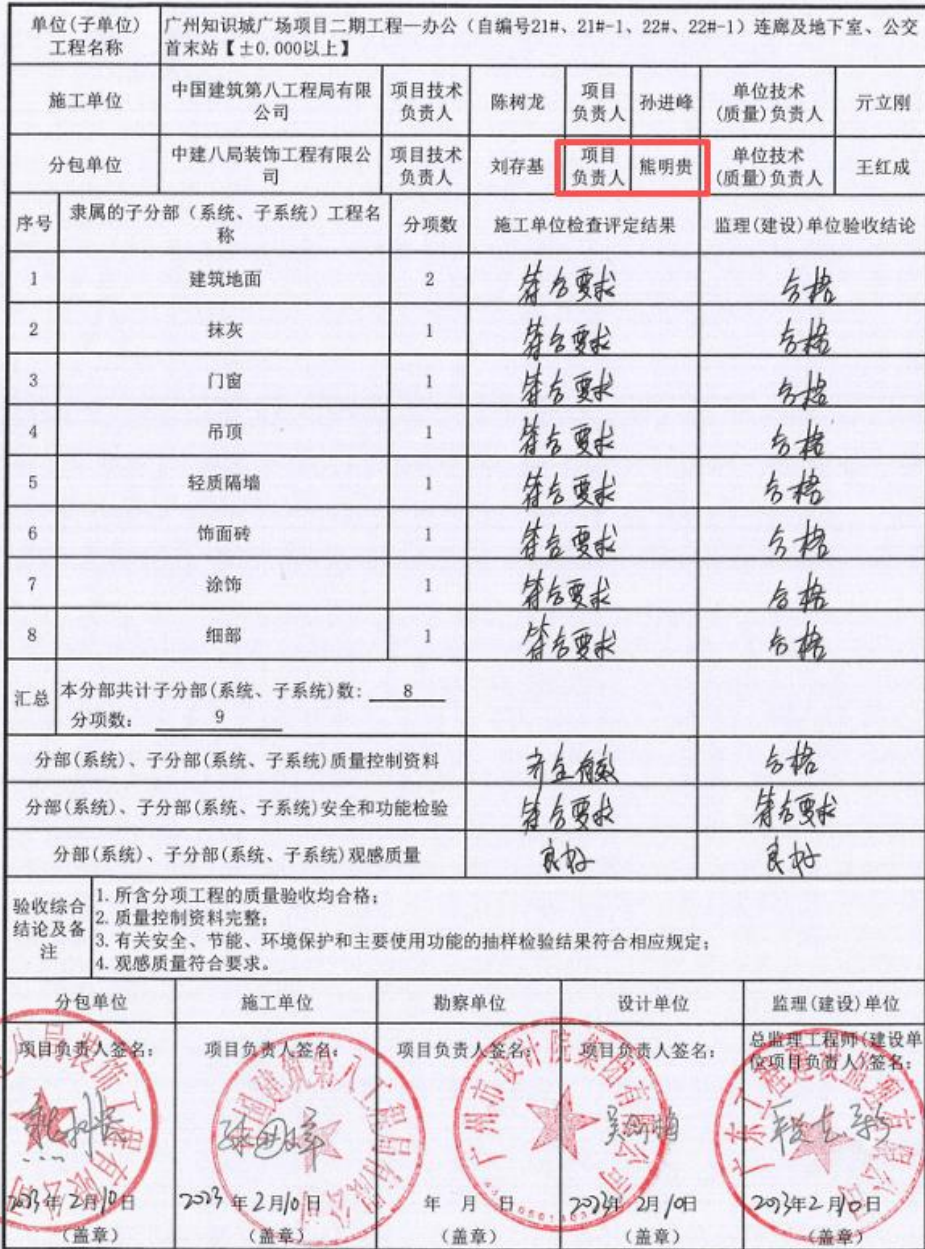 单位(子单位)
工程名称
广州知识城广场项目二期工程—办公（自编号21#、21#-1、22#、22#-1）连廊及地下室、公交
首末站【±0.000以上】
施工单位
中国建筑第八工程局有限
公司
项目技术
负责人
陈树龙
项目
负责人
孙进峰
单位技术
(质量)负责人
亓立刚
分包单位
中建八局装饰工程有限公
司
项目技术
负责人
刘存基
项目
负责人
熊明贵
单位技术
(质量)负责人
王红成
序号
隶属的子分部（系统、子系统）工程名
称
分项数
施工单位检查评定结果
监理(建设)单位验收结论
1 建筑地面 2 符合要求 合格
2 抹灰 1 符合要求 合格
3 门窗 1 符合要求 合格
4 吊顶 1 符合要求 合格
5 轻质隔墙 1 符合要求 合格
6 饰面砖 1 符合要求 合格
7 涂饰 1 符合要求 合格
8 细部 1 符合要求 合格
汇总
本分部共计子分部(系统、子系统)数: 8
分项数: 9
分部(系统)、子分部(系统、子系统)质量控制资料 齐全有效 合格
分部(系统)、子分部(系统、子系统)安全和功能检验 符合要求 符合要求
分部(系统)、子分部(系统、子系统)观感质量 良好 良好
验收综合
结论及备
注
1. 所含分项工程的质量验收均合格;
2. 质量控制资料完整;
3. 有关安全、节能、环境保护和主要使用功能的抽样检验结果符合相应规定;
4. 观感质量符合要求。
分包单位 施工单位 勘察单位 设计单位 监理(建设)单位
项目负责人签名: 项目负责人签名: 项目负责人签名: 项目负责人签名: 总监理工程师(建设单
位项目负责人)签名:
2023年2月10日 2023年2月10日 年 月 日 2023年 2月10日 2023年2月10日
(盖章) (盖章) (盖章) (盖章) (盖章)